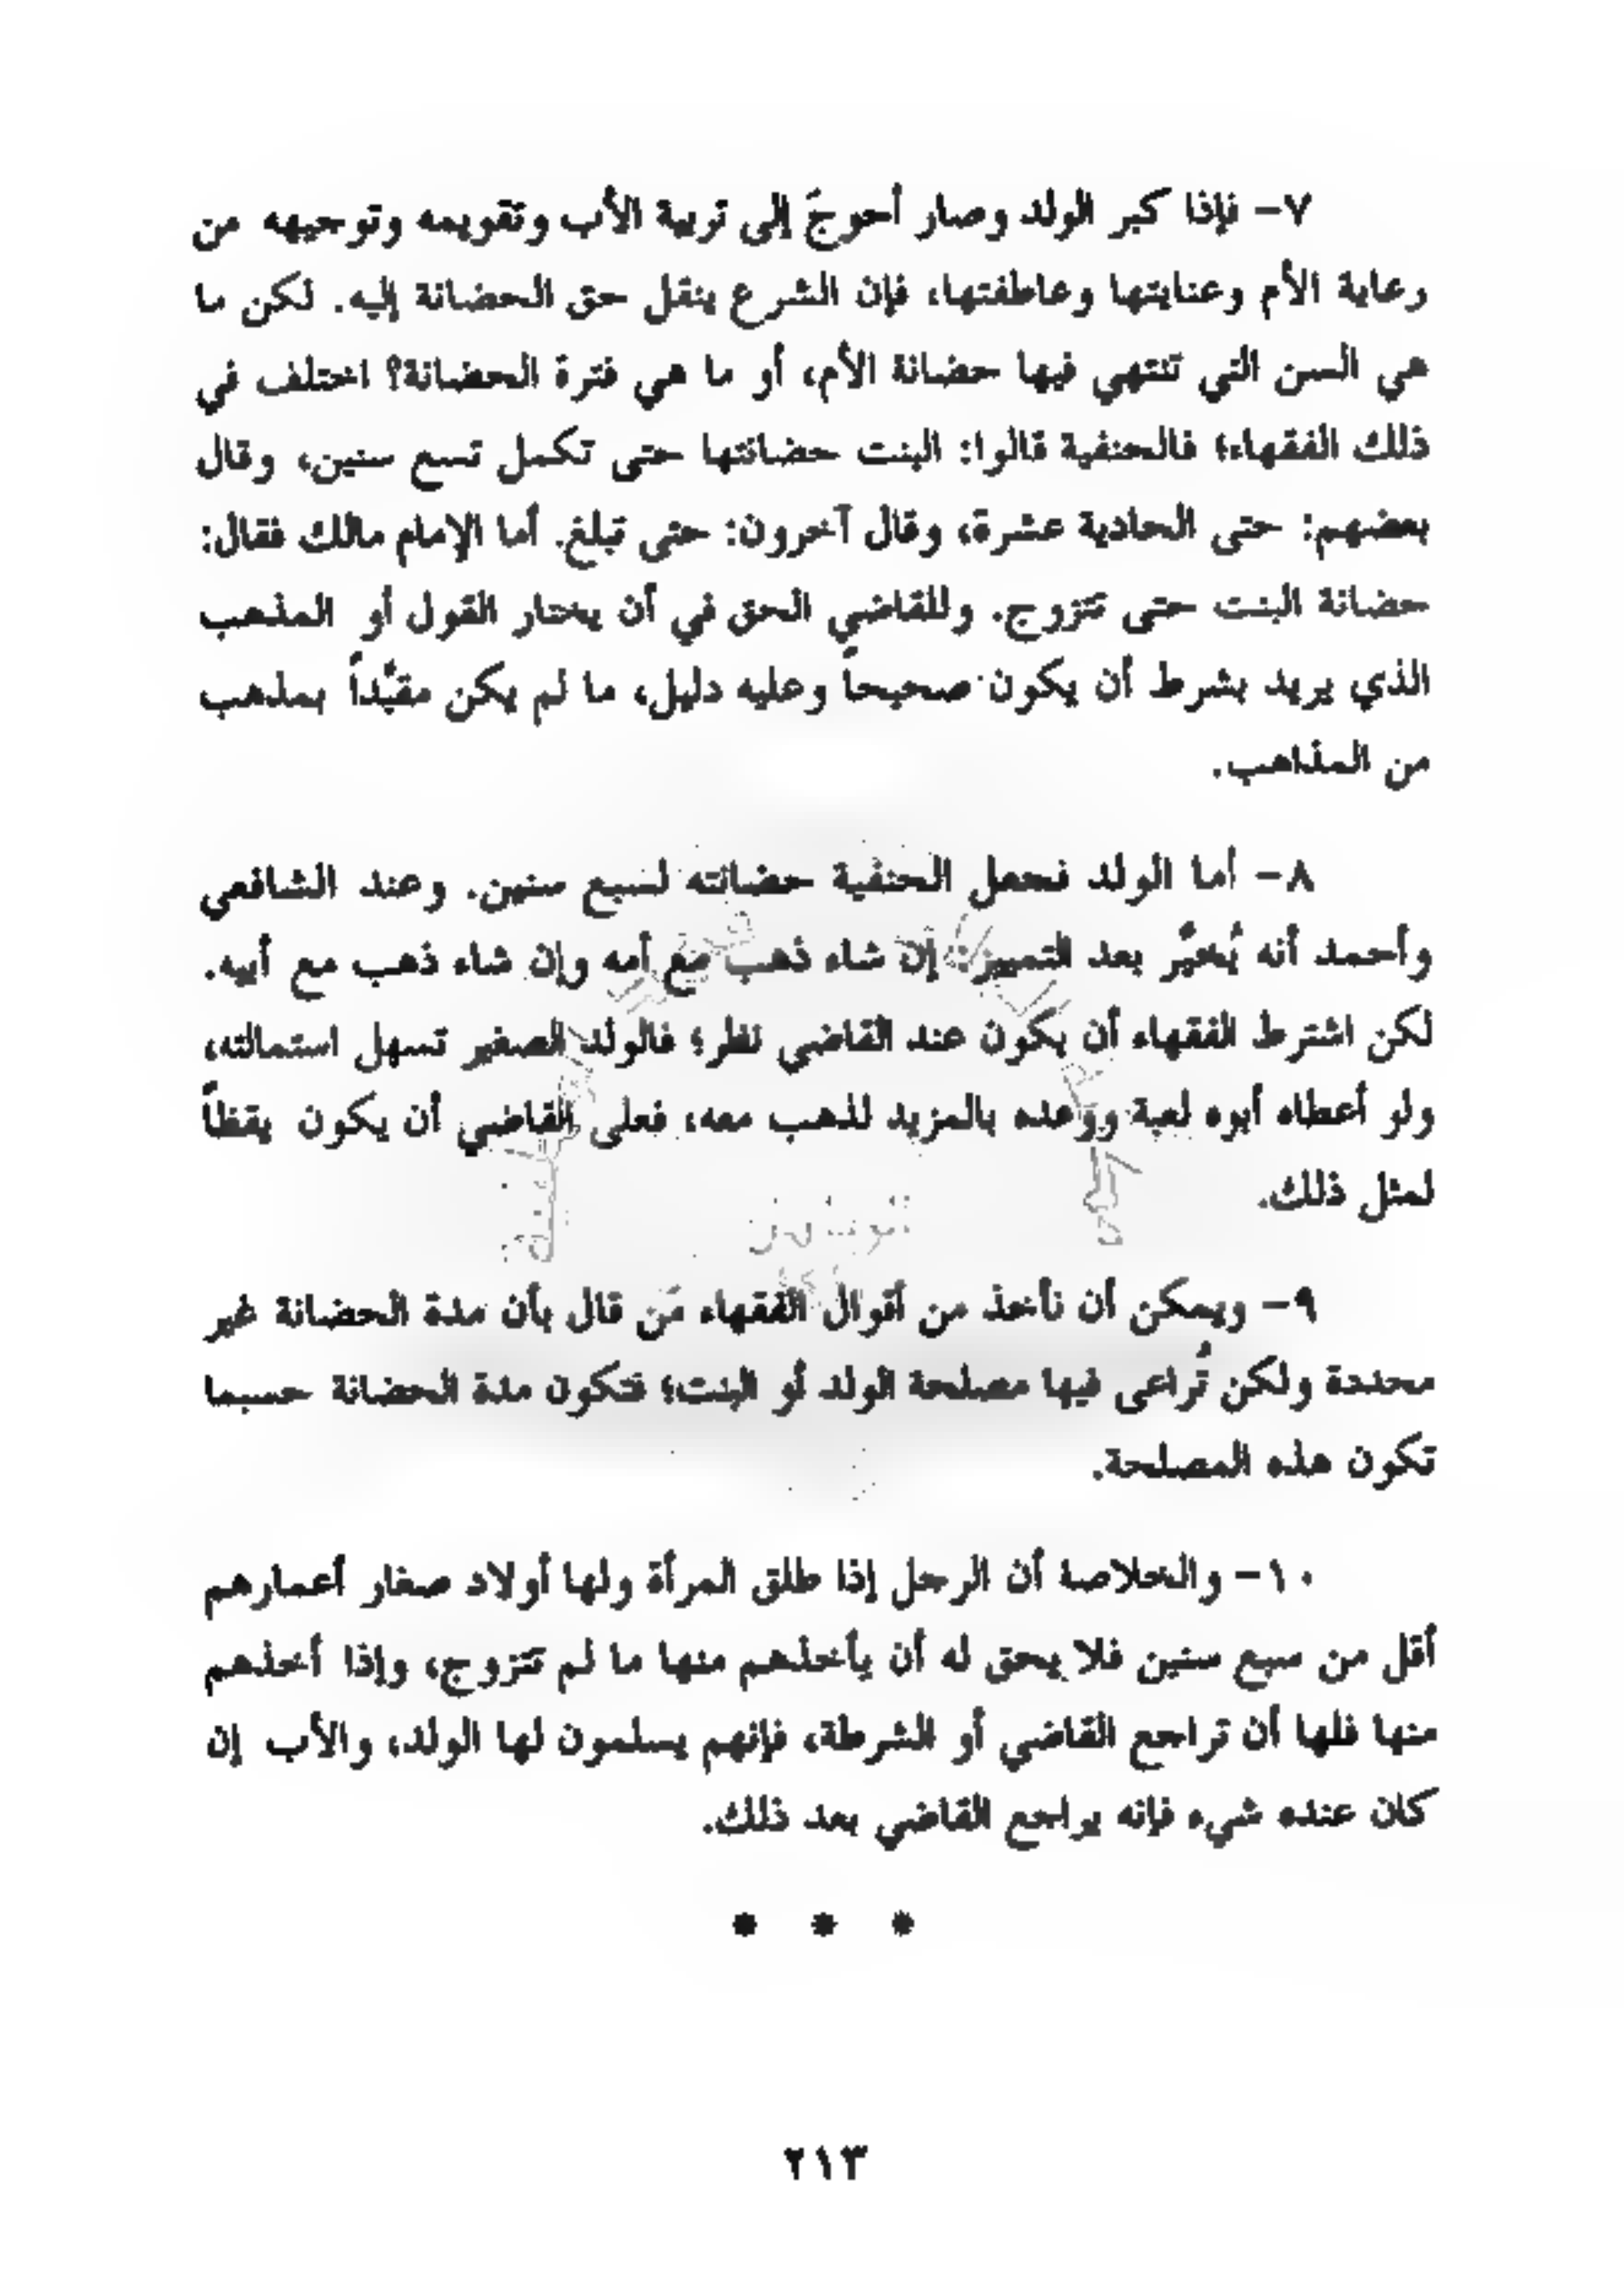 ٧- فإذا كبر الولد وصار أحوجَ إلى تربية الأب وتقويمه وتوجيهه من
رعاية الأم وعنايتها وعاطفتها، فإن الشرع ينقل حق الحضانة إليه. لكن ما
هي السن التي تنتهي فيها حضانة الأم، أو ما هي فترة الحضانة؟ اختلف في
ذلك الفقهاء؛ فالحنفية قالوا: البنت حضانتها حتى تكمل تسع سنين، وقال
بعضهم: حتى الحادية عشرة، وقال آخرون: حتى تبلغ. أما الإمام مالك فقال:
حضانة البنت حتى تتزوج. وللقاضي الحق في أن يختار القول أو المذهب
الذي يريد بشرط أن يكون صحيحاً وعليه دليل، ما لم يكن مقيَّداً بمذهب
من المذاهب.
٨- أما الولد فجعل الحنفية حضانته لسبع سنين. وعند الشافعي
وأحمد أنه يُخيَّر بعد التمييز: إن شاء ذهب مع أمه وإن شاء ذهب مع أبيه.
لكن اشترط الفقهاء أن يكون عند القاضي نظر؛ فالولد الصغير تسهل استمالته،
ولو أعطاه أبوه لعبة ووعده بالمزيد لذهب معه، فعلى القاضي أن يكون يقظاً
لمثل ذلك.
٩- ويمكن أن نأخذ من أقوال الفقهاء مَن قال بأن مدة الحضانة غير
محددة ولكن تُراعى فيها مصلحة الولد أو البنت؛ فتكون مدة الحضانة حسبما
تكون هذه المصلحة.
١٠- والخلاصة أن الرجل إذا طلق المرأة ولها أولاد صغار أعمارهم
أقل من سبع سنين فلا يحق له أن يأخذهم منها ما لم تتزوج، وإذا أخذهم
منها فلها أن تراجع القاضي أو الشرطة، فإنهم يسلمون لها الولد، والأب إن
كان عنده شيء فإنه يراجع القاضي بعد ذلك.
* * *
٢١٣